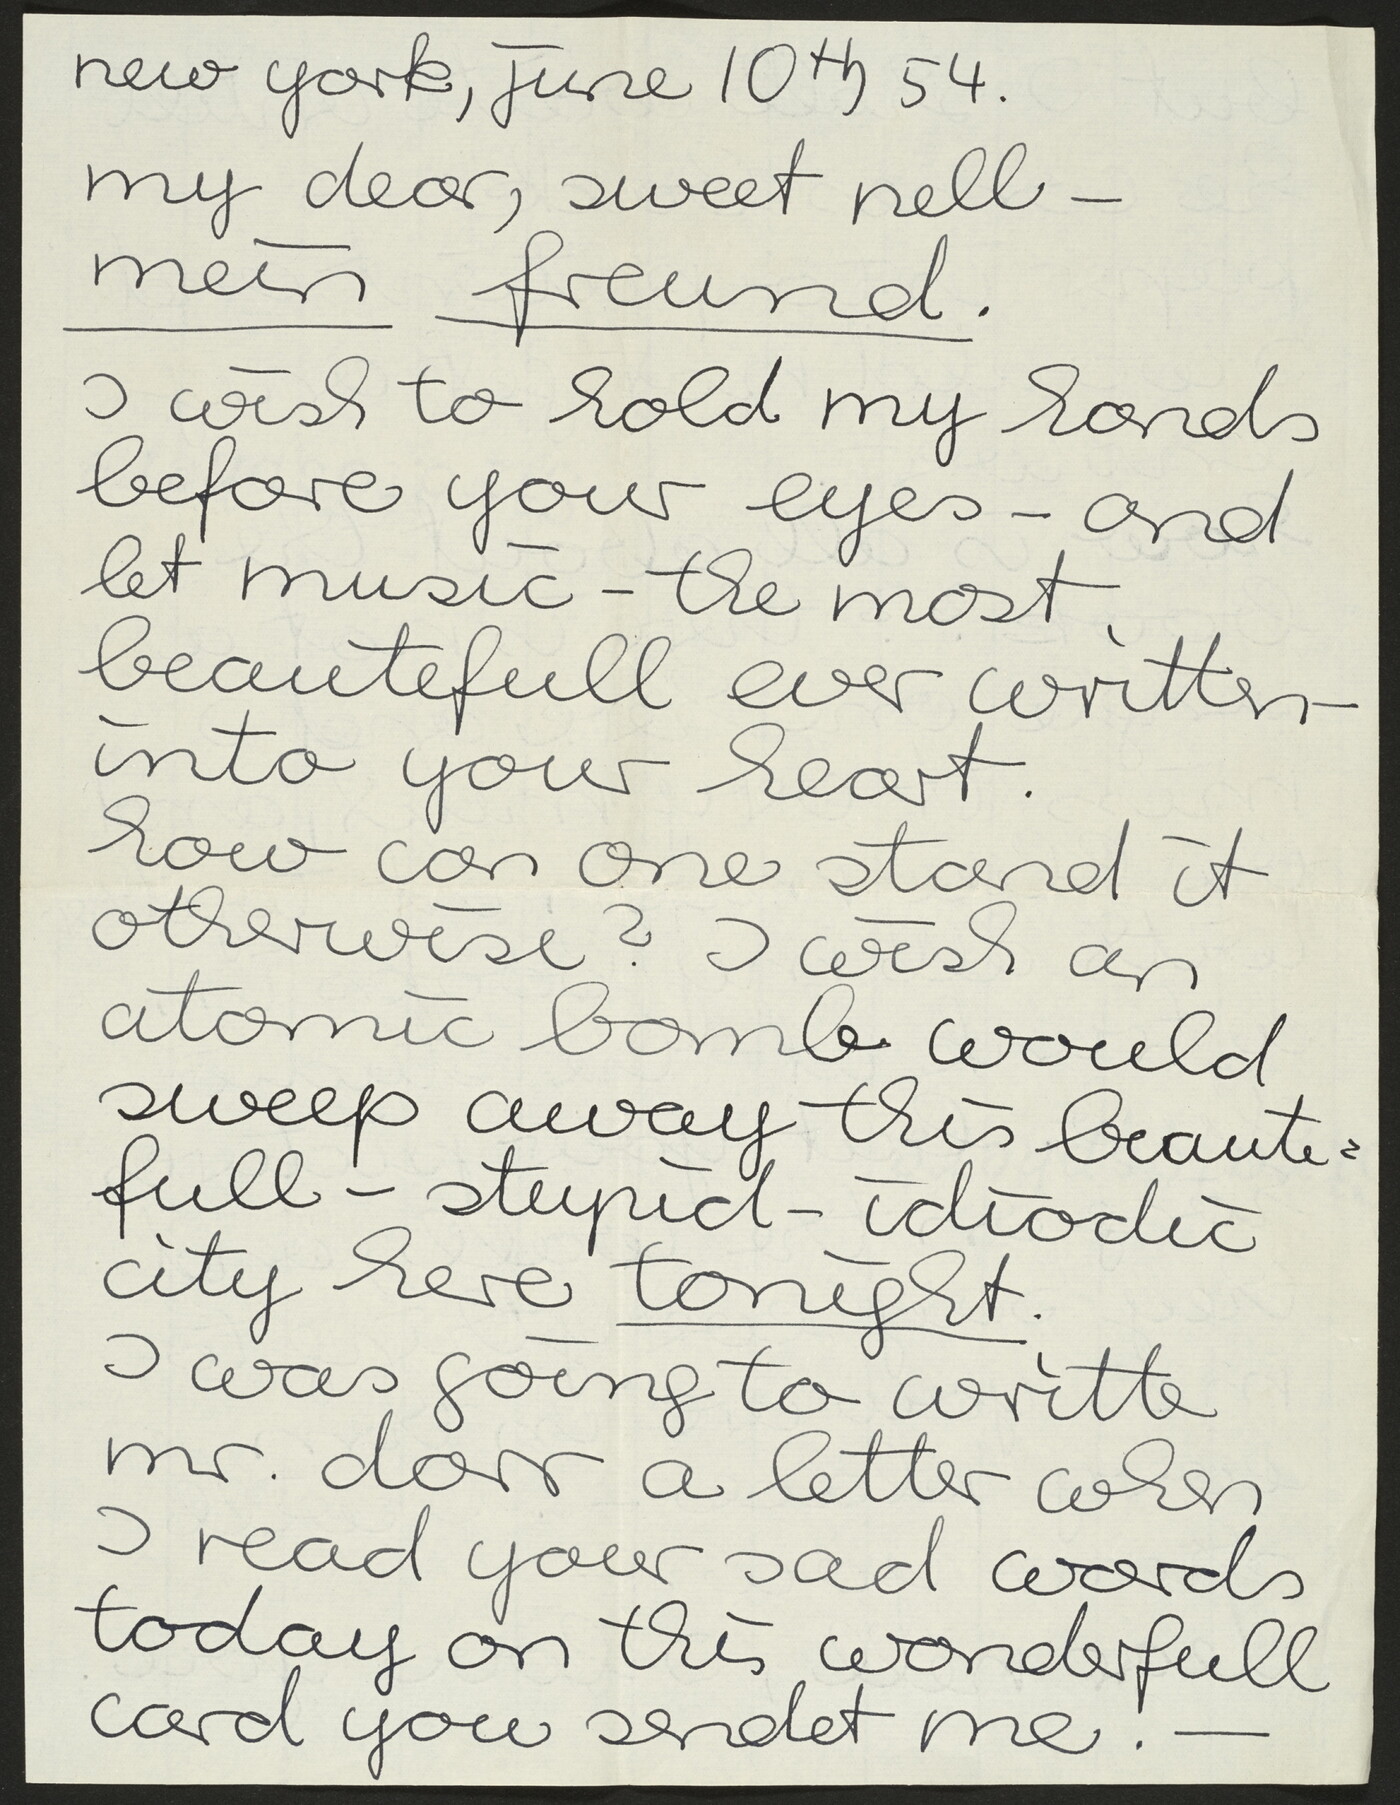 new york, june 10th 54.
my dear, sweet nell –
mein freund.
I wish to hold my hands
before your eyes – and
let music – the most
beautefull ever written –
into your heart.
how can one stand it
otherwise? I wish an
atomic bomb would
sweep away this beaute=
full – stupid – idiodic
city here tonight.
I was going to writte
mr. dorr a letter when
I read your sad words
today on this wonderfull
card you sendet me! —